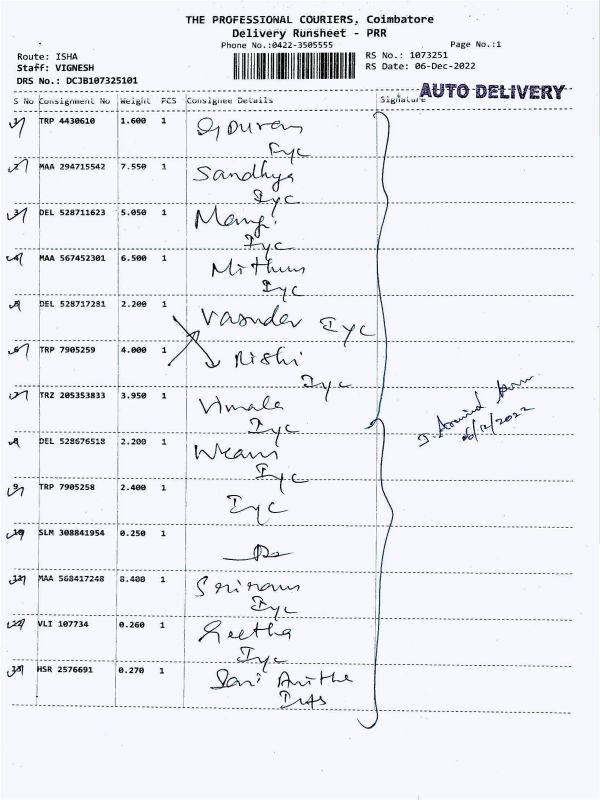 THE PROFESSIONAL COURIERS, Coimbatore
Delivery Runsheet - PRR
Phone No.:0422-3505555 Page No.:1
Route: ISHA RS No.: 1073251
Staff: VIGNESH RS Date: 06-Dec-2022
DRS No.: DCJB107325101
AUTO DELIVERY
S No Consignment No Weight PCS Consignee Details Signature
1 TRP 4430610 1.600 1
Iyc
2 MAA 294715542 7.550 1 Sandhya
Iyc
3 DEL 528711623 5.050 1
Iyc
4 MAA 567452301 6.500 1 Mithun
Iyc
5 DEL 528717281 2.200 1 Iyc
6 TRP 7905259 4.000 1 Rishi
Iyc
7 TRZ 205353833 3.950 1 Vimala
Iyc
06/12/2022
8 DEL 528676518 2.200 1
Iyc
9 TRP 7905258 2.400 1 Iyc
10 SLM 308841954 0.250 1
11 MAA 568417248 8.400 1 Sriram
Iyc
12 VLI 107734 0.260 1 Geetha
Iyc
13 HSR 2576691 0.270 1